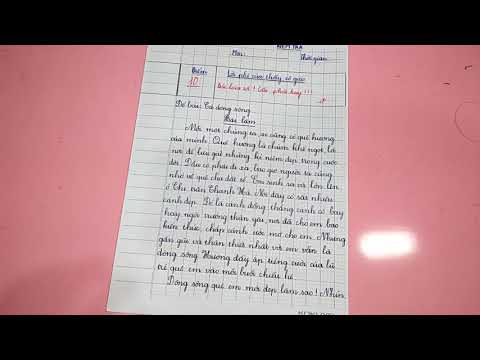 KIỂM TRA
Môn: Thời gian
Điểm Lời phê của thầy, cô giáo
10
Đề bài: Tả dòng sông
Bài làm
Mỗi một chúng ta ai cũng có quê hương
của mình. Quê hương là chùm khế ngọt, là
nơi để lưu giữ những kỉ niệm đẹp trong cuộc
đời. Dẫu có phải đi xa, bao giờ người ta cũng
nhớ về quê cha đất tổ. Em sinh ra và lớn lên
ở Thị trấn Thanh Hà. Nơi đây có rất nhiều
cảnh đẹp. Đó là cánh đồng thẳng cánh cò bay
hay ngôi trường thân yêu, nơi đã cho em bao
kiến thức, chắp cánh ước mơ cho em. Nhưng
gần gũi và thân thiết nhất với em vẫn là
dòng sông Hương đầy ắp tiếng cười của lũ
trẻ quê em vào mỗi buổi chiều hè.
Dòng sông quê em mới đẹp làm sao! Nhìn